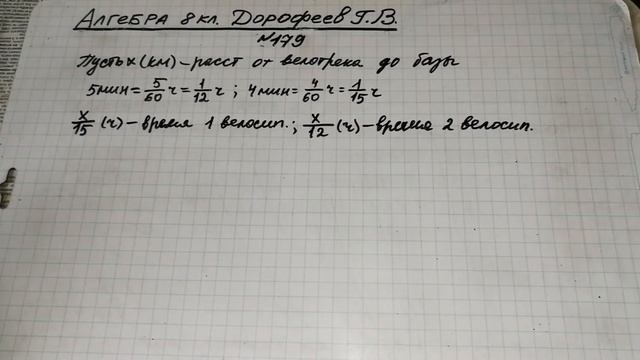 Алгебра 8 кл. Дорофеев Г.В.
№179
Пусть x (км) – расст от велотрека до базы
5 мин = 5/60 ч = 1/12 ч ; 4 мин = 4/60 ч = 1/15 ч
x/15 (ч) – время 1 велосип. ; x/12 (ч) – время 2 велосип.